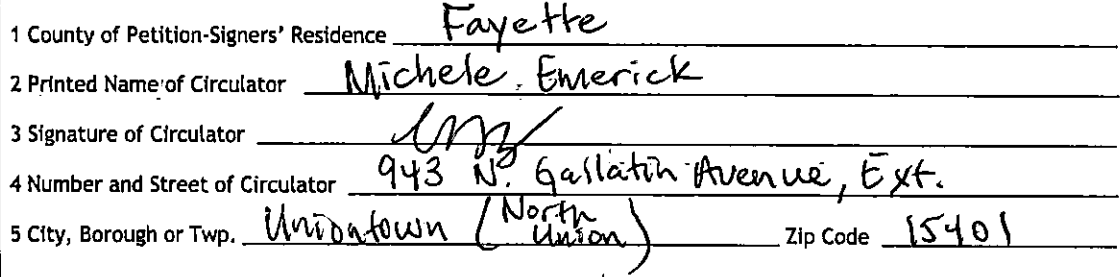 1 County of Petition-Signers' Residence Fayette
2 Printed Name of Circulator Michele Emerick
3 Signature of Circulator
4 Number and Street of Circulator 943 N. Gallatin Avenue, Ext.
5 City, Borough or Twp. Uniontown (North Union) Zip Code 15401